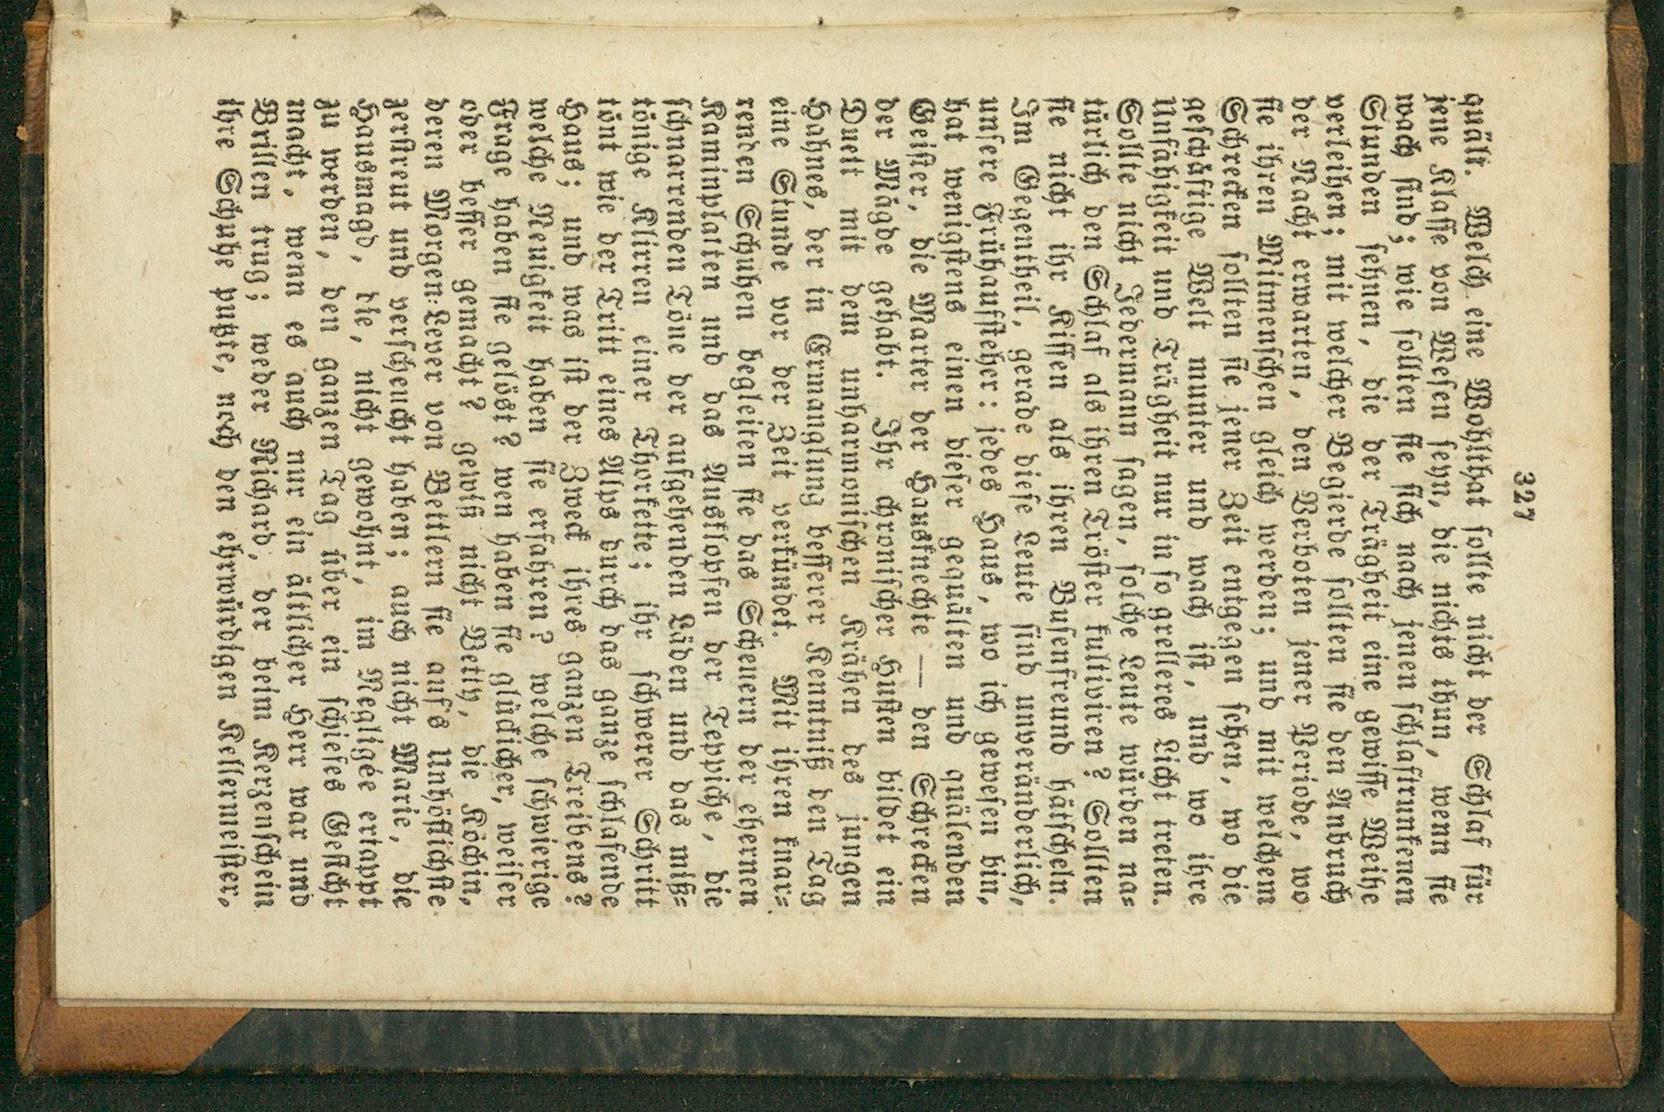 327
quält. Welch eine Wohlthat sollte nicht der Schlaf für
jene Klasse von Wesen seyn, die nichts thun, wenn sie
wach sind; wie sollten sie sich nach jenen schlaftrunkenen
Stunden sehnen, die der Trägheit eine gewisse Weihe
verleihen; mit welcher Begierde sollten sie den Anbruch
der Nacht erwarten, den Verboten jener Periode, wo
sie ihren Mitmenschen gleich werden; und mit welchem
Schrecken sollten sie jener Zeit entgegen sehen, wo die
geschäftige Welt munter und wach ist, und wo ihre
Unfähigkeit und Trägheit nur in so grelleres Licht treten.
Sollte nicht Jedermann sagen, solche Leute würden na-
türlich den Schlaf als ihren Tröster kultiviren? Sollten
sie nicht ihr Kissen als ihren Busenfreund hätscheln.
Im Gegentheil, gerade diese Leute sind unveränderlich,
unsere Frühaufsteher: jedes Haus, wo ich gewesen bin,
hat wenigstens einen dieser gequälten und quälenden
Geister, die Marter der Hausknechte — den Schrecken
der Mägde gehabt. Ihr chronischer Husten bildet ein
Duett mit dem unharmonischen Krähen des jungen
Hahnes, der in Ermanglung besserer Kenntniß den Tag
eine Stunde vor der Zeit verkündet. Mit ihren knar-
renden Schuhen begleiten sie das Scheuern der ehernen
Kaminplatten und das Ausklopfen der Tepiche, die
schnarrenden Töne der aufgehenden Läden und das miß-
tönige Klirren einer Thorkette; ihr schwerer Schritt
tönt wie der Tritt eines Alps durch das ganze schlafende
Haus; und was ist der Zweck ihres ganzen Treibens?
welche Neuigkeit haben sie erfahren? welche schwierige
Frage haben sie gelöst? wen haben sie glücklicher, weiser
oder besser gemacht? gewiß nicht Betty, die Köchin,
deren Morgen-Lever von Bettlern sie aufs Unhöflichste
zerstreut und verscheucht haben; auch nicht Marie, die
Hausmagd, die, nicht gewohnt, im Negligée ertappt
zu werden, den ganzen Tag über ein schiefes Gesicht
macht, wenn es auch nur ein ältlicher Herr war und
Brillen trug; weder Richard, der beim Kerzenschein
ihre Schuhe putzte, noch den ehrwürdigen Kellermeister,